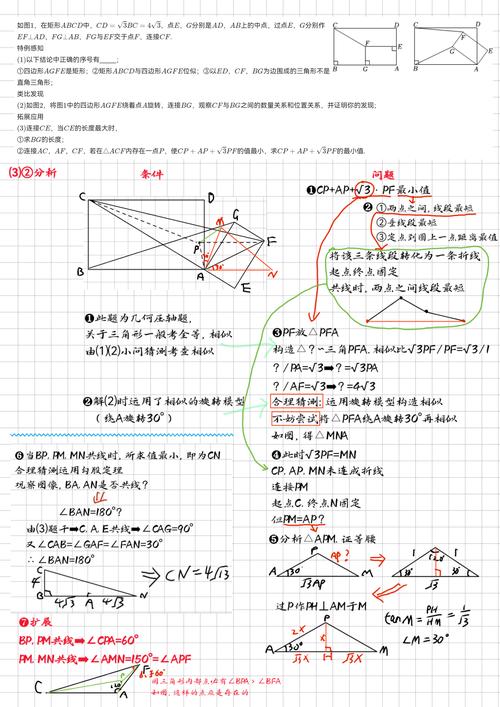 如图1，在矩形ABCD中，CD=√3BC=4√3，点E，G分别是AD，AB上的中点，过点E，G分别作
EF⊥AD，FG⊥AB，FG与EF交于点F，连接CF.
特例感知
(1)以下结论中正确的序号有____；
①四边形AGFE是矩形；②矩形ABCD与四边形AGFE位似；③以ED，CF，BG为边围成的三角形不是
直角三角形；
类比发现
(2)如图2，将图1中的四边形AGFE绕着点A旋转，连接BG，观察CF与BG之间的数量关系和位置关系，并证明你的发现；
拓展应用
(3)连接CE，当CE的长度最大时，
①求BG的长度；
②连接AC，AF，CF，若在△ACF内存在一点P，使CP+AP+√3PF的值最小，求CP+AP+√3PF的最小值.
C D F E B G A
C D G F E B A
(3)②分析 条件 问题
❶CP+AP+√3·PF最小值
❷ ①两点之间，线段最短
②垂线段最短
③定点到圆上一点距离最值
将该三条线段转化为一条折线
起点终点固定
共线时，两点之间线段最短
C D M G P F B A 30° 30° N E
❶此题为几何压轴题，
关于三角形一般考全等，相似
由(1)(2)小问猜测考查相似
❷解(2)时运用了相似的旋转模型
(绕A旋转30°)
❸PF放△PFA
构造△?~三角PFA.相似比√3PF/PF=√3/1
?/PA=√3➡?=√3PA
?/AF=√3➡?=4√3
合理猜测：运用旋转模型构造相似
不妨尝试，将△PFA绕A旋转30°再相似
如图，得△MNA
❹此时√3PF=MN
CP.AP.MN未连成折线
连接PM
起点C.终点N固定
但PM=AP?
❺分析△APM.证等腰
P AP? A 30° √3AP M
2 1 30° √3
过P作PH⊥AM于M
P 2x x A 30° √3x H √3x M
tanM=PH/HM=1/√3
∠M=30°
❻当BP.PM.MN共线时，所求值最小，即为CN
合理猜测运用勾股定理
观察图像，BA.AN是否共线?
∠BAN=180°?
由(3)题干➡C.A.E共线➡∠CAG=90°
又∠CAB=∠GAF=∠FAN=30°
∴∠BAN=180°
C 4 B 4√3 A 4√3 N ⇒CN=4√13
❼扩展
BP.PM共线➡∠CPA=60°
PM.MN共线➡∠AMN=150°=∠APF
C F P A
因三角形内部点必有∠BPA>∠BFA
如图，这样的点应是存在的